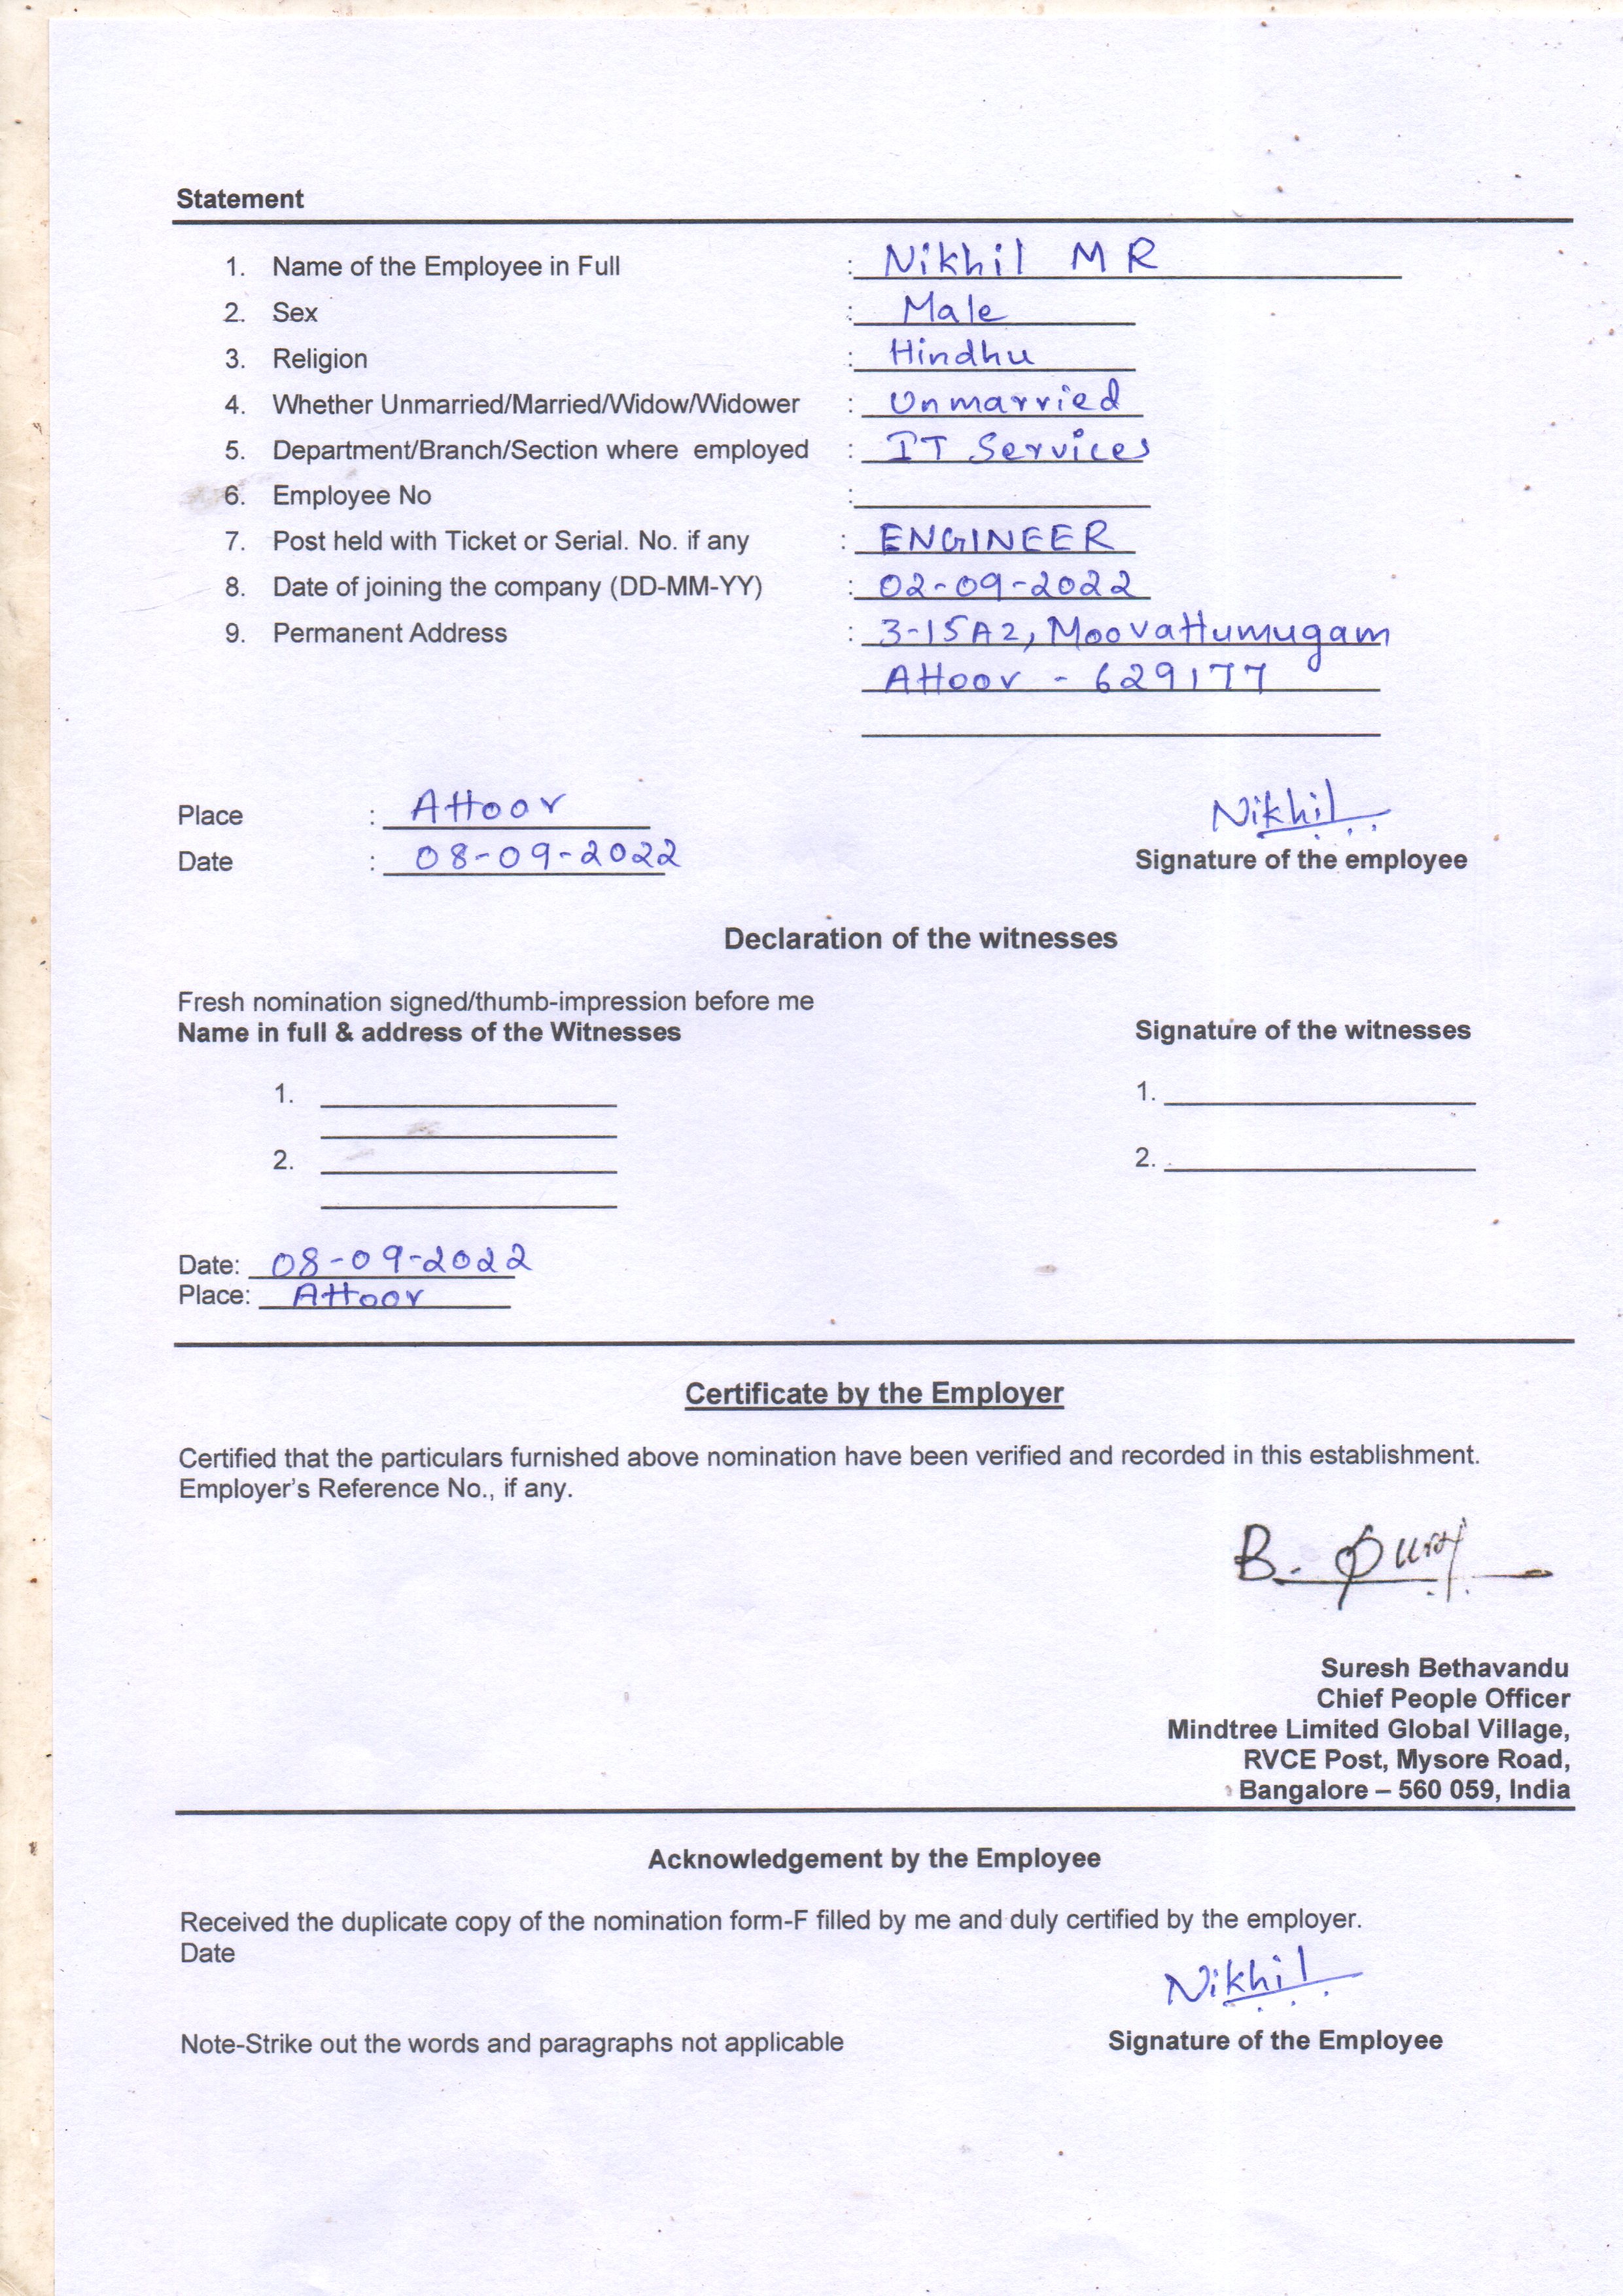 Statement
1. Name of the Employee in Full : Nikhil M R
2. Sex : Male
3. Religion : Hindhu
4. Whether Unmarried/Married/Widow/Widower : Unmarried
5. Department/Branch/Section where employed : IT Services
6. Employee No :
7. Post held with Ticket or Serial. No. if any : ENGINEER
8. Date of joining the company (DD-MM-YY) : 02-09-2022
9. Permanent Address : 3-15A2, Moovattumugam
Attoor - 629177
Place : Attoor
Nikhil
Date : 08-09-2022
Signature of the employee
Declaration of the witnesses
Fresh nomination signed/thumb-impression before me
Name in full & address of the Witnesses Signature of the witnesses
1. 1.
2. 2.
Date: 08-09-2022
Place: Attoor
Certificate by the Employer
Certified that the particulars furnished above nomination have been verified and recorded in this establishment.
Employer's Reference No., if any.
B.
Suresh Bethavandu
Chief People Officer
Mindtree Limited Global Village,
RVCE Post, Mysore Road,
Bangalore – 560 059, India
Acknowledgement by the Employee
Received the duplicate copy of the nomination form-F filled by me and duly certified by the employer.
Date
Nikhil
Note-Strike out the words and paragraphs not applicable Signature of the Employee